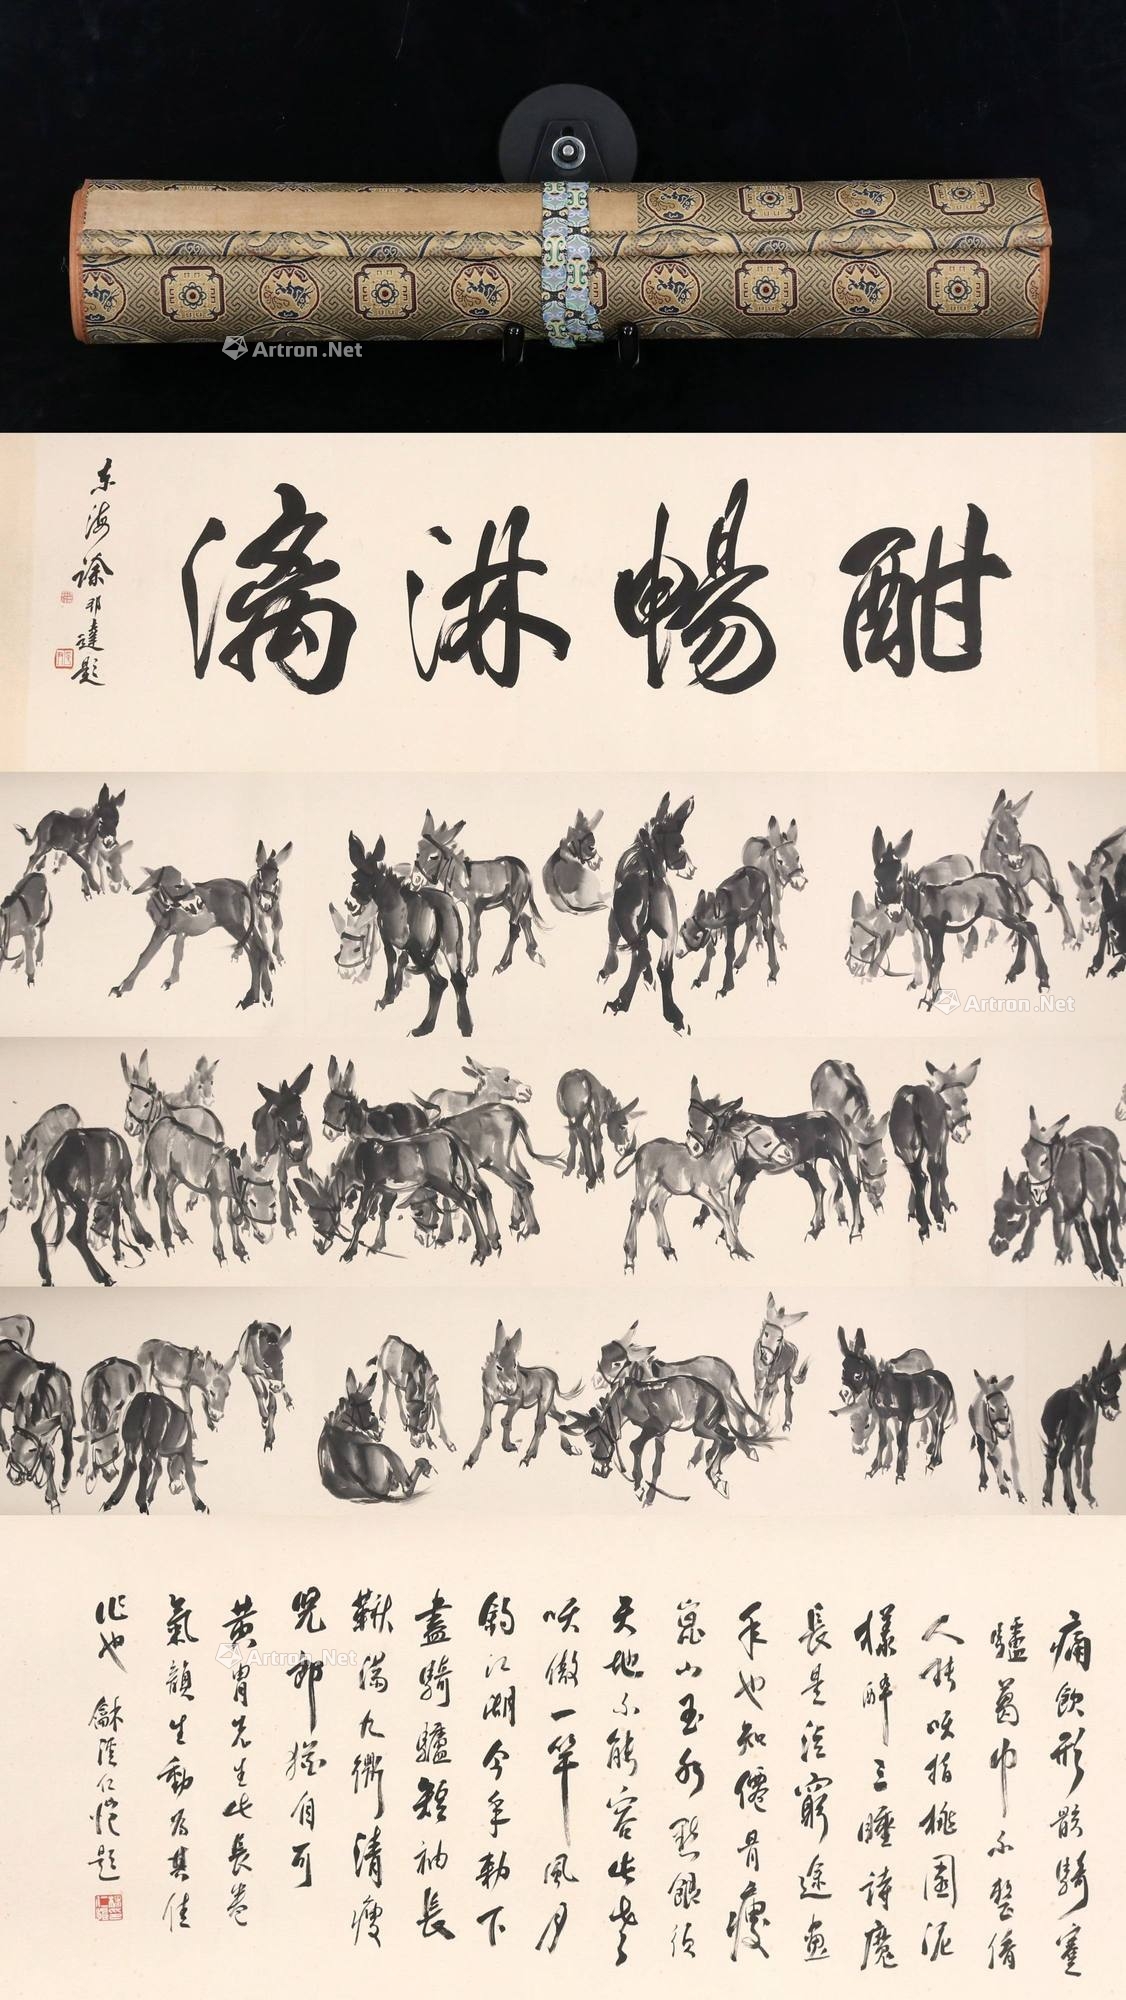 酣暢淋漓
东海徐邦達題
痛飲形骸騎蹇
驢葛巾不整倩
人扶笑指桃園泥
樣醉三瞳詩魔
長是泣窮途畫
手也知僊骨瘦
崑山玉
天地不能容此老
笑傲一竿風月
鈎江湖今年勅下
盡騎驢短袖長
鞦滿九衢清瘦
兒郎猶自可
黄胄先生此長卷
氣韻生動為其佳
作也龢溪仁愷題
Artron.Net
Artron.Net
Artron.Net